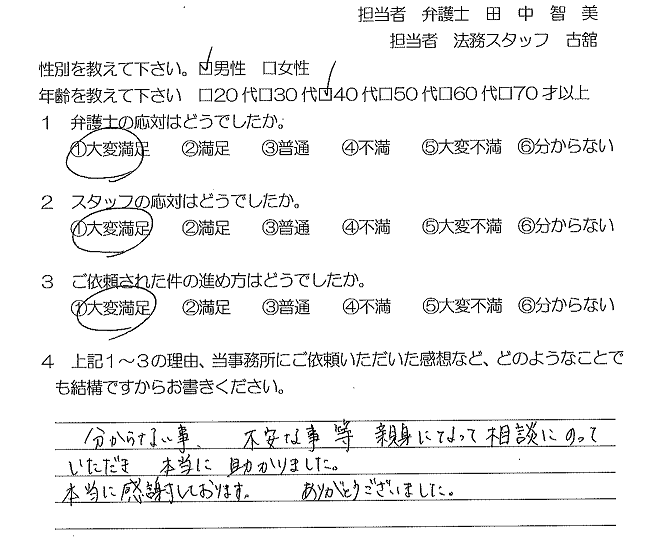 担当者 弁護士 田 中 智 美
担当者 法務スタッフ 古舘
性別を教えて下さい。☑男性 □女性
年齢を教えて下さい □20代□30代☑40代□50代□60代□70才以上
1 弁護士の応対はどうでしたか。
①大変満足 ②満足 ③普通 ④不満 ⑤大変不満 ⑥分からない
2 スタッフの応対はどうでしたか。
①大変満足 ②満足 ③普通 ④不満 ⑤大変不満 ⑥分からない
3 ご依頼された件の進め方はどうでしたか。
①大変満足 ②満足 ③普通 ④不満 ⑤大変不満 ⑥分からない
4 上記1~3の理由、当事務所にご依頼いただいた感想など、どのようなことで
も結構ですからお書きください。
分からない事、 不安な事 等 親身になって相談にのって
いただき 本当に 助かりました。
本当に感謝しております。 ありがとうございました。